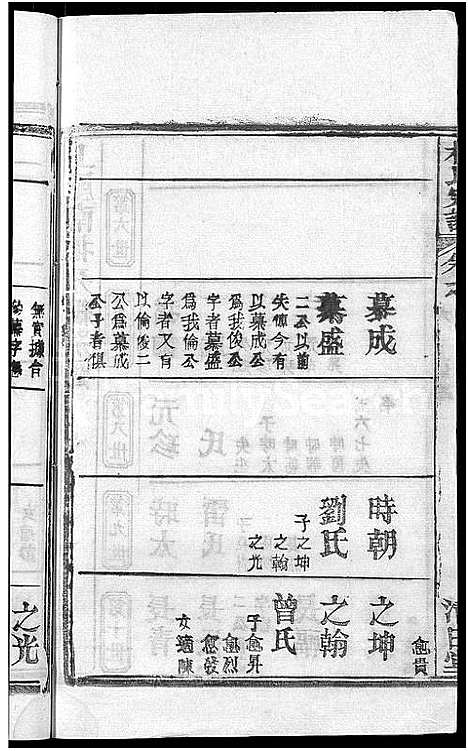 慕成
慕盛
二公以前
失諱今有
以慕成公
為我俊公
字者慕盛
為我倫公
字者又有
以倫俊二
公為慕成
公子者俱
無實據合
時朝
劉氏
子之坤
之翰
之光
愈貴
之坤
之翰
曾氏
子愈昇
愈烈
愈發
女適陳
之光